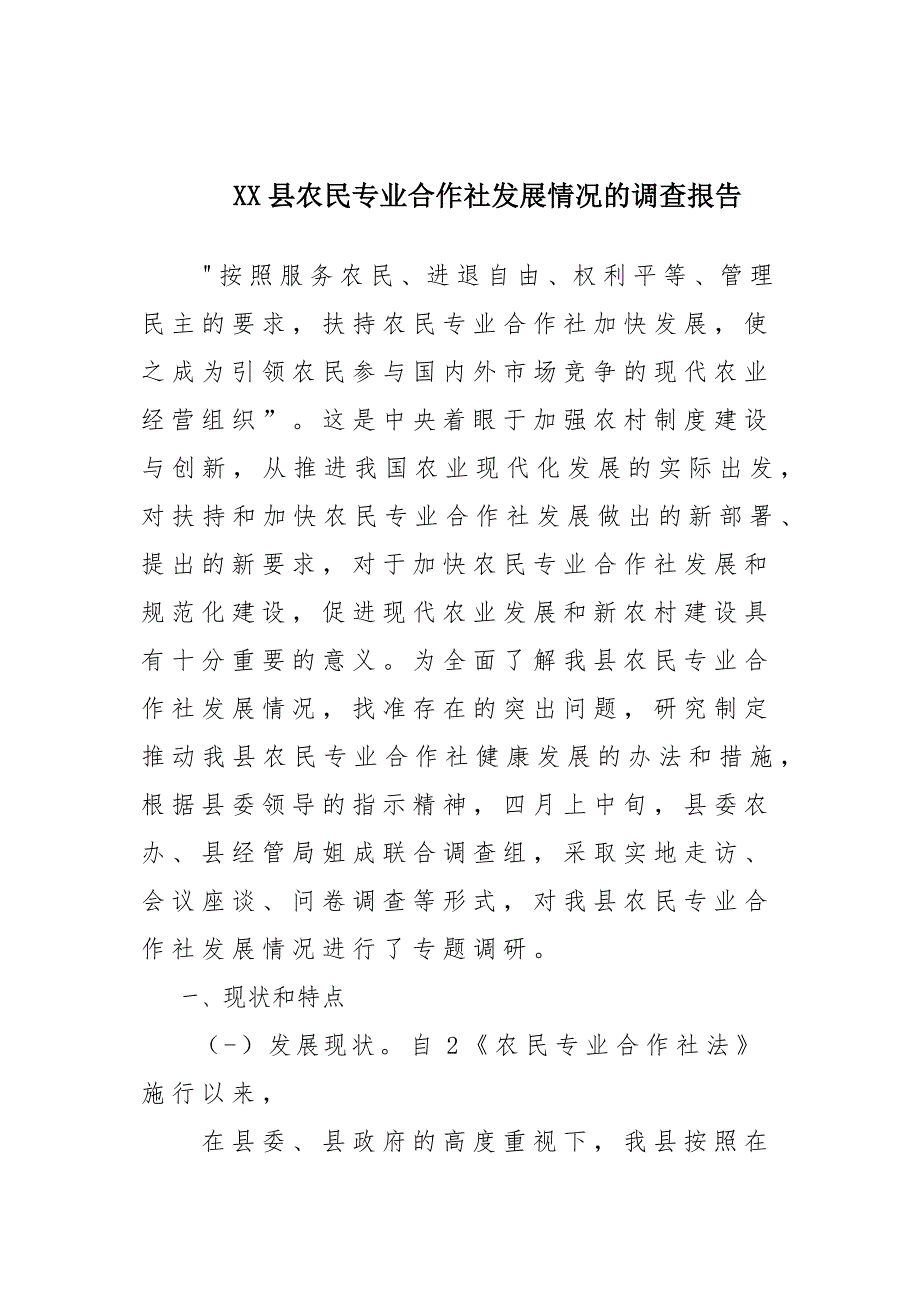 XX县农民专业合作社发展情况的调查报告
"按照服务农民、进退自由、权利平等、管理
民主的要求，扶持农民专业合作社加快发展，使
之成为引领农民参与国内外市场竞争的现代农业
经营组织”。这是中央着眼于加强农村制度建设
与创新，从推进我国农业现代化发展的实际出发，
对扶持和加快农民专业合作社发展做出的新部署、
提出的新要求，对于加快农民专业合作社发展和
规范化建设，促进现代农业发展和新农村建设具
有十分重要的意义。为全面了解我县农民专业合
作社发展情况，找准存在的突出问题，研究制定
推动我县农民专业合作社健康发展的办法和措施，
根据县委领导的指示精神，四月上中旬，县委农
办、县经管局姐成联合调查组，采取实地走访、
会议座谈、问卷调查等形式，对我县农民专业合
作社发展情况进行了专题调研。
一、现状和特点
（-）发展现状。自2《农民专业合作社法》
施行以来，
在县委、县政府的高度重视下，我县按照在